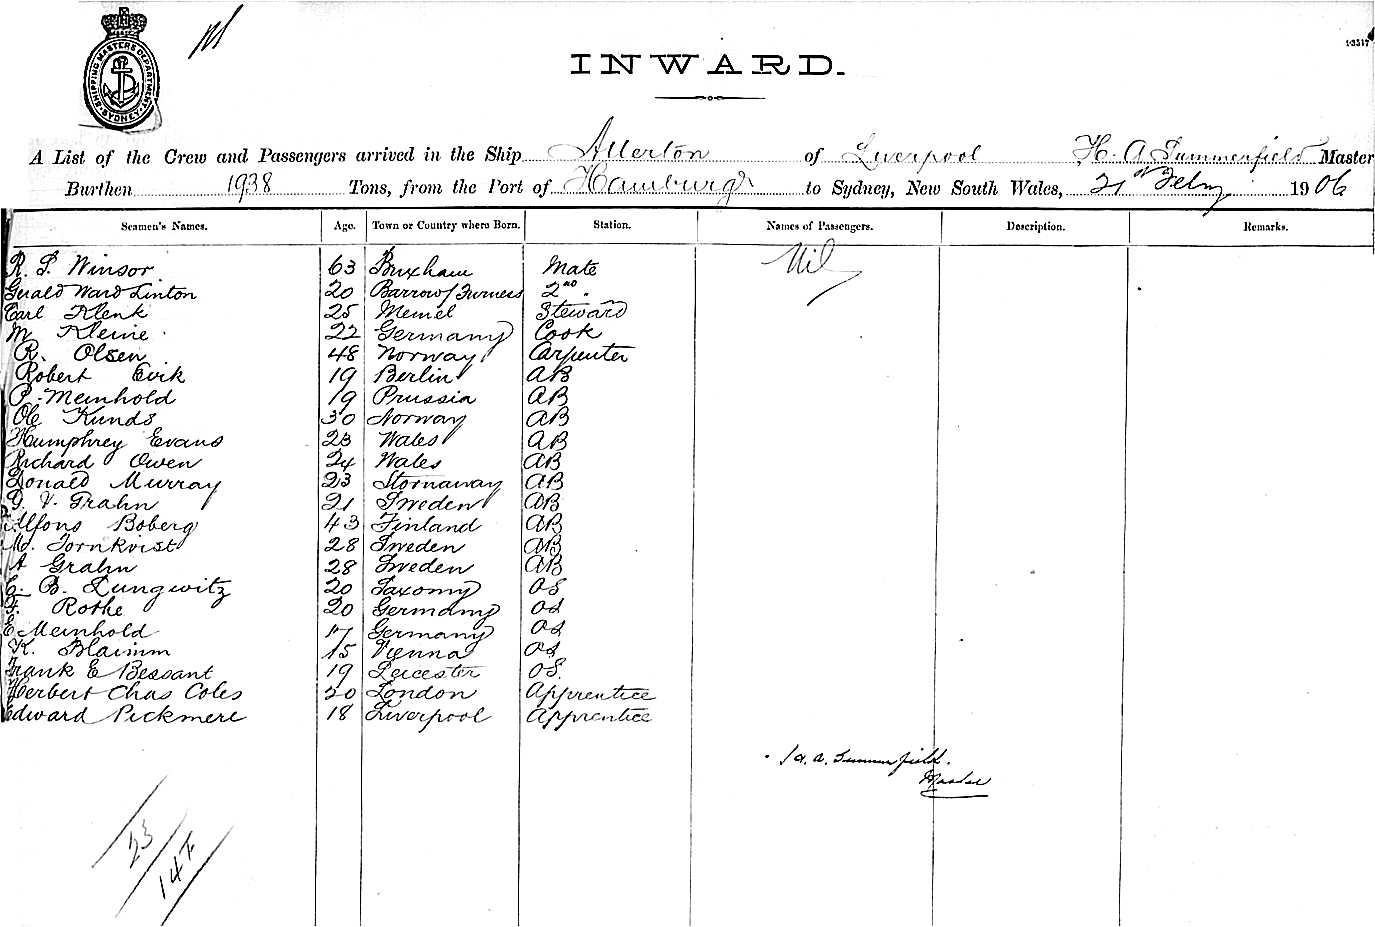 SHIPPING MASTERS DEPARTMENT SYDNEY
13517
INWARD.
A List of the Crew and Passengers arrived in the Ship Allerton of Liverpool H. A. Summerfield Master
Burthen 1938 Tons, from the Port of Hamburg to Sydney, New South Wales, 21st Feby 1906
Seamen's Names. Age. Town or Country where Born. Station. Names of Passengers. Description. Remarks.
R. S. Winsor 63 Brixham Mate Nil
Gerald Ward Linton 20 Barrow/Furness 2nd
Carl Klenk 25 Memel Steward
M Kleine 22 Germany Cook
R. Olsen 48 Norway Carpenter
Robert Evik 19 Berlin AB
P. Meinhold 19 Prussia AB
Ole Kunds 30 Norway AB
Humphrey Evans 23 Wales AB
Richard Owen 24 Wales AB
Donald Murray 23 Stornaway AB
G. V. Grahn 21 Sweden AB
Alfons Boberg 43 Finland AB
M. Tornkvist 28 Sweden AB
A Grahn 28 Sweden AB
E. B. Lungwitz 20 Saxony OS
F. Rothe 20 Germany OS
E Meinhold 17 Germany OS
K. Blaimm 15 Vienna OS
Frank E Bessant 19 Leicester OS.
Herbert Chas Coles 20 London Apprentice
Edward Pickmere 18 Liverpool Apprentice
H. A. Summerfield.
Master
23
147